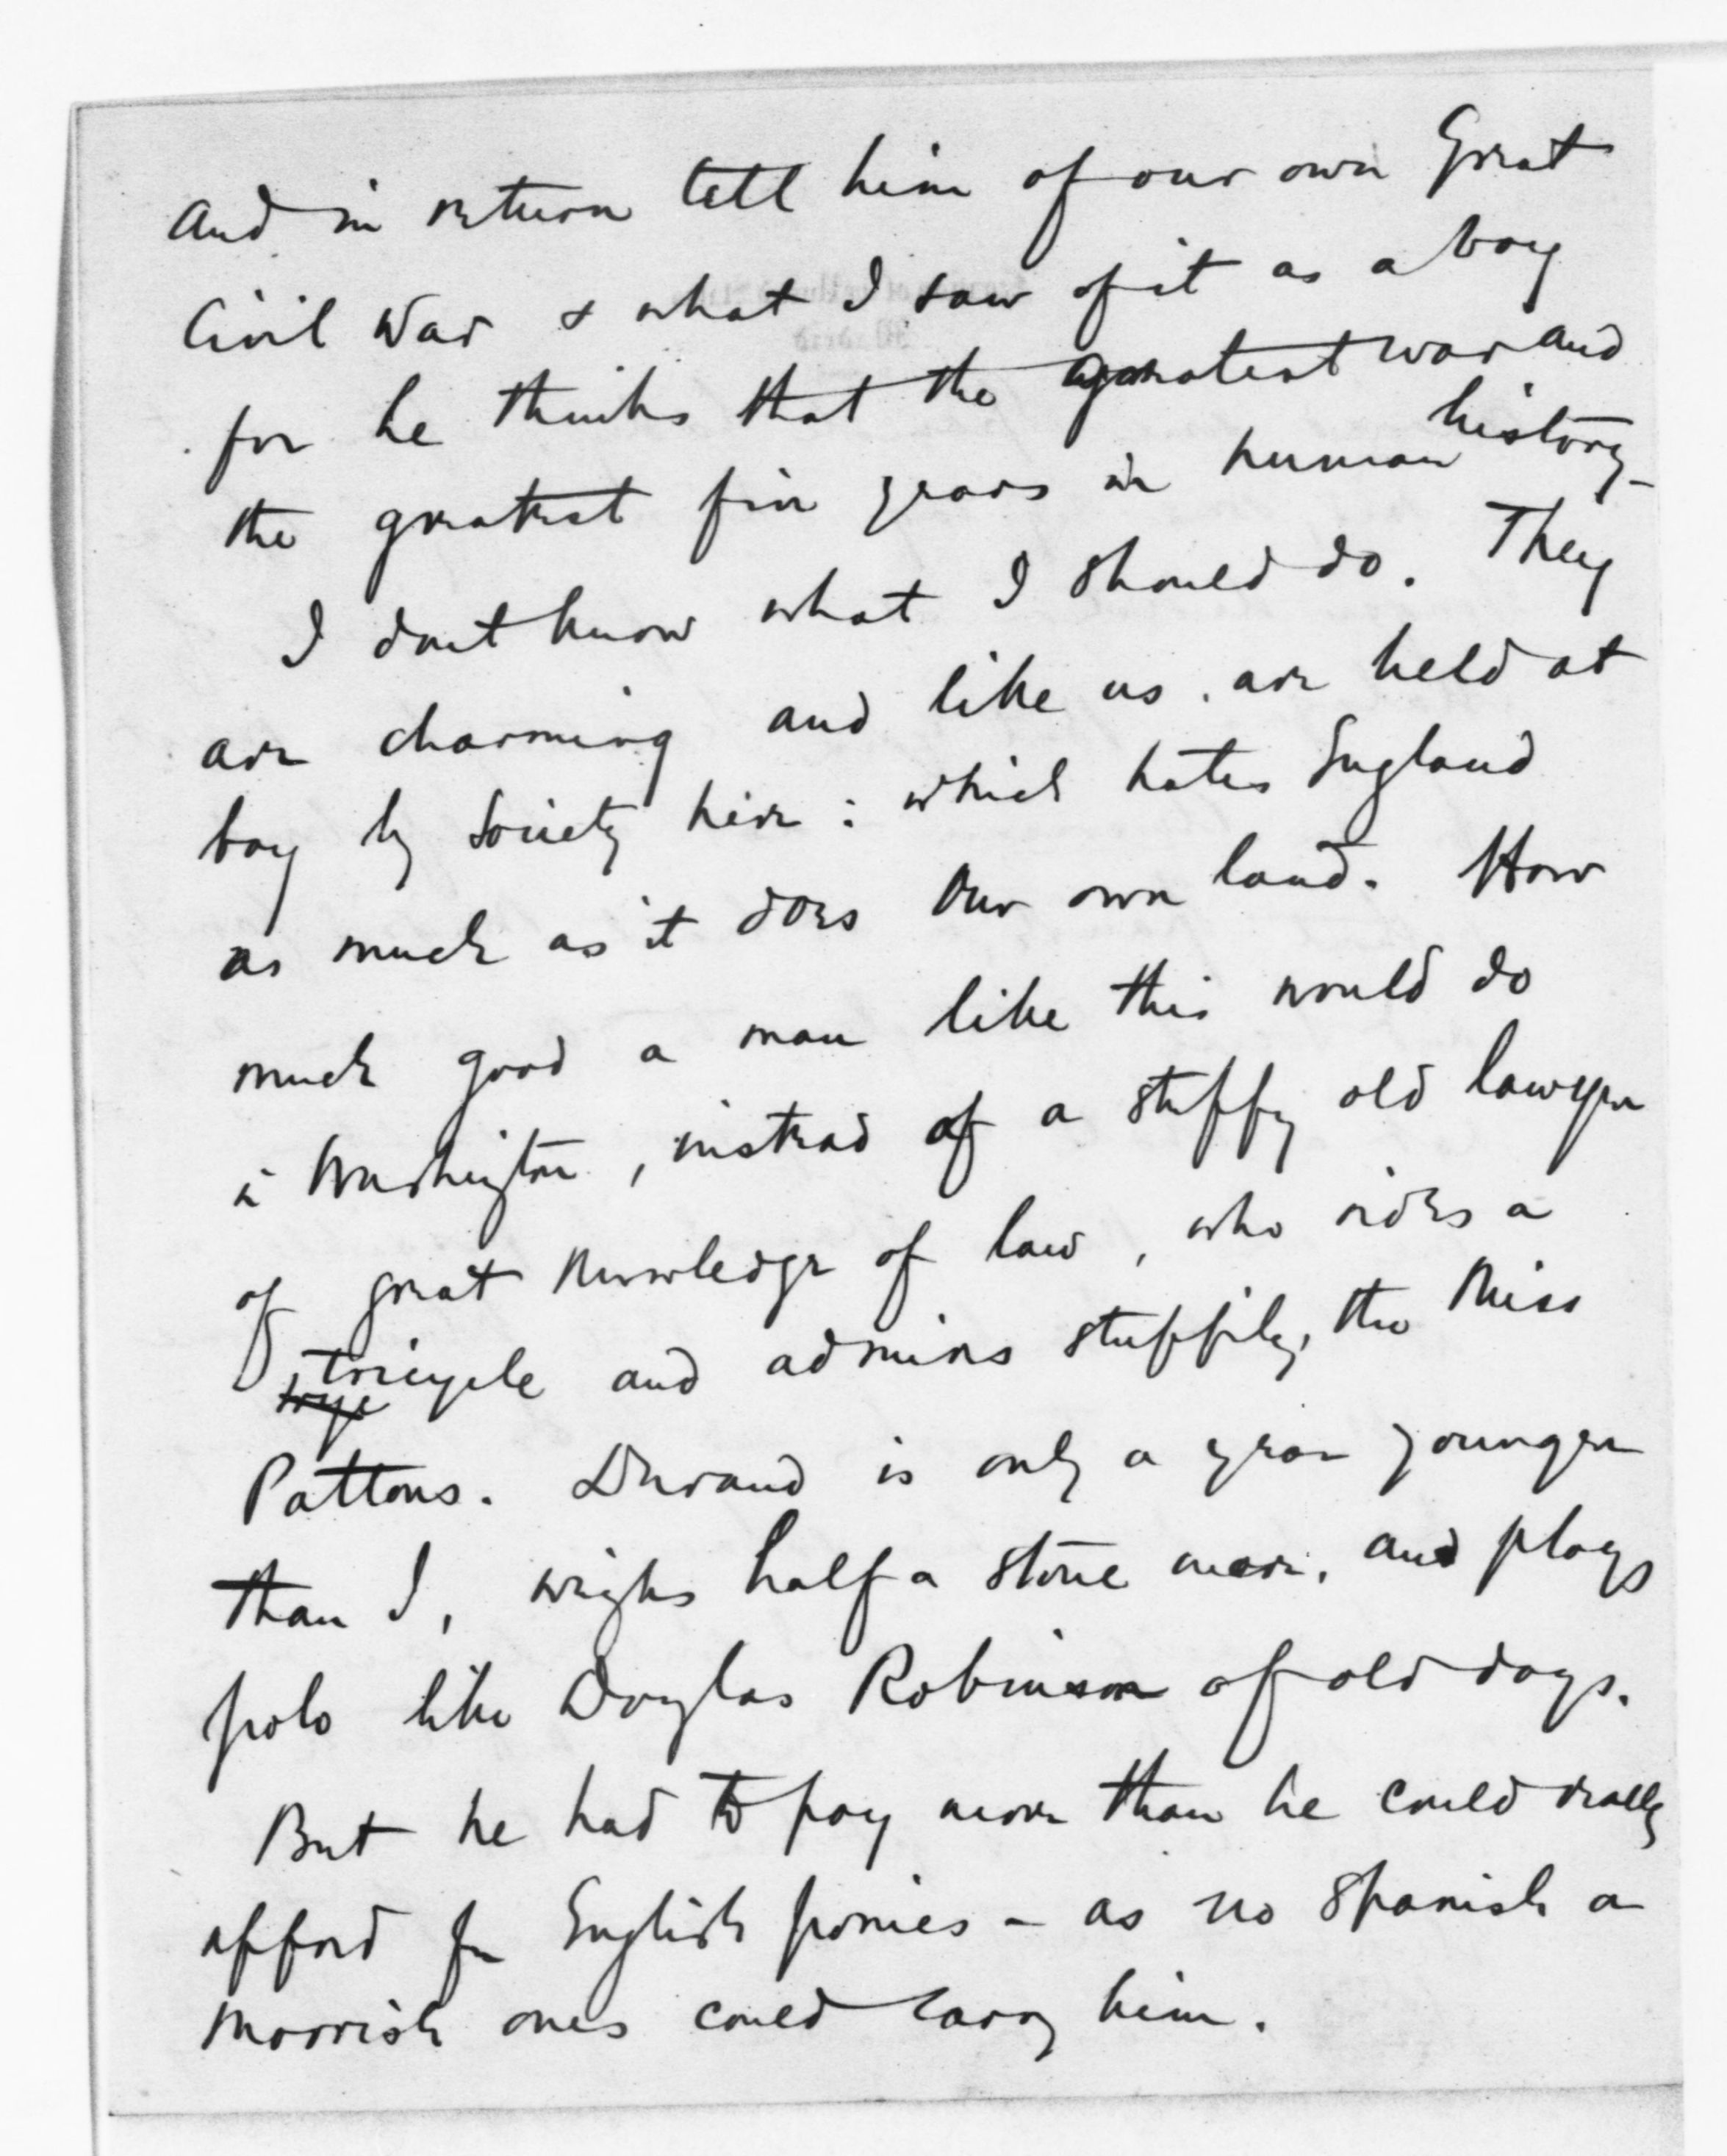 and in return tell him of our own Great
Civil War & what I saw of it as a boy
for he thinks that the greatest war and
the greatest five years in human history_
I dont know what I should do. They
are charming and like us. are held at
bay by Society here: which hates England
as much as it does Our own land. How
much good a man like this would do
in Washington, instead of a stuffy old lawyer
of great knowledge of law, who rides a
tryc tricycle and admires stuffily, the Miss
Pattons. Durand is only a year younger
than I, weighs half a stone more, and plays
polo like Douglas Robinson of old days.
But he had to pay more than he could really
afford for English ponies - as no Spanish or
Moorish ones could carry him.